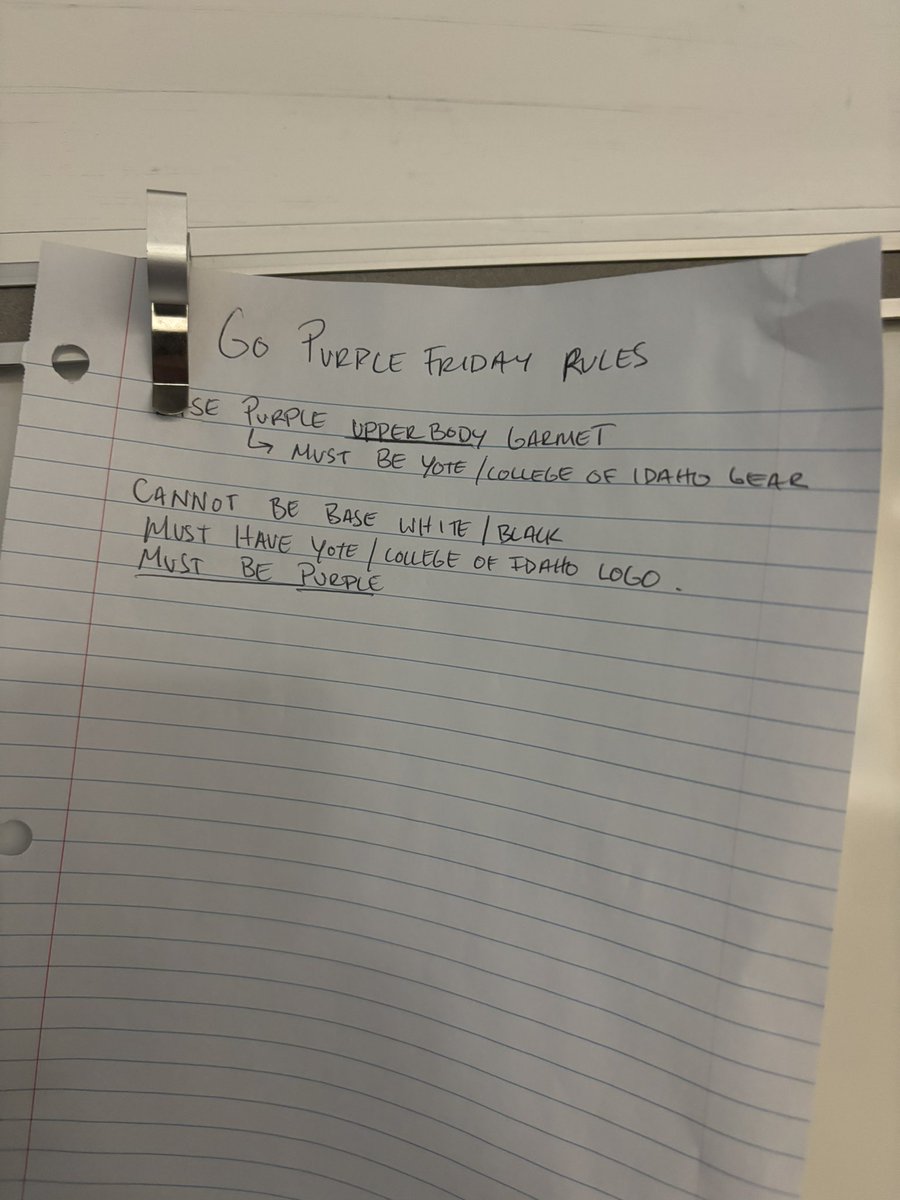 GO PURPLE FRIDAY RULES
PURPLE UPPER BODY GARMET
↳ MUST BE YOTE/COLLEGE OF IDAHO GEAR
CANNOT BE BASE WHITE/BLACK
MUST HAVE YOTE/COLLEGE OF IDAHO LOGO.
MUST BE PURPLE